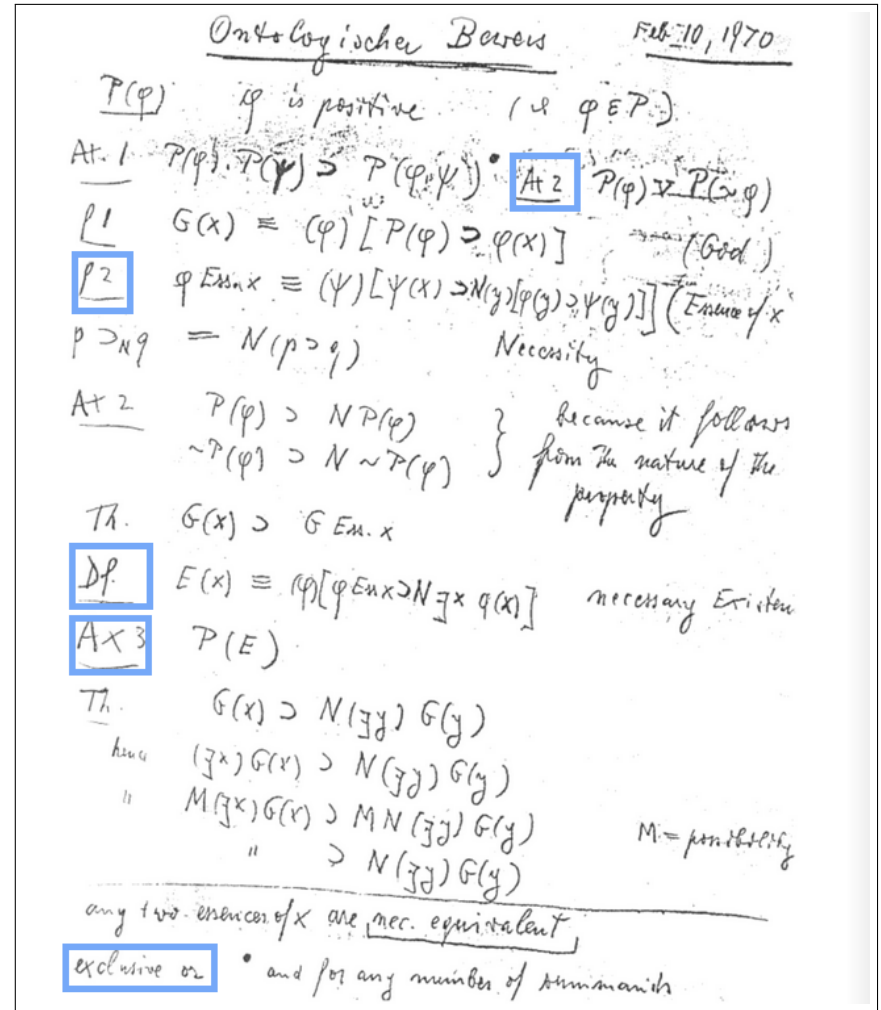 Ontologischer Beweis Feb 10, 1970
P(φ) φ is positive (⸱ φ ε P.)
At. 1 P(φ).P(ψ) ⊃ P(φ.ψ)• At 2 P(φ) ⊻ P(∼φ)
P1 G(x) ≡ (φ)[P(φ) ⊃ φ(x)] (God)
P2 φ Ess.x ≡ (ψ)[ψ(x) ⊃ N(y)[φ(y) ⊃ ψ(y)]] (Essence of x
p ⊃N q = N(p ⊃ q) Necessity
At 2 P(φ) ⊃ N P(φ) } because it follows
∼P(φ) ⊃ N ∼P(φ) from the nature of the
property
Th. G(x) ⊃ G Ess. x
Df. E(x) ≡ (φ)[φ Ess x ⊃ N ∃x φ(x)] necessary Existen
Ax 3 P(E)
Th. G(x) ⊃ N(∃y) G(y)
hence (∃x)G(x) ⊃ N(∃y) G(y)
" M(∃x)G(x) ⊃ M N (∃y) G(y) M = possibility
" ⊃ N(∃y) G(y)
any two essences of x are nec. equivalent
exclusive or • and for any number of summands